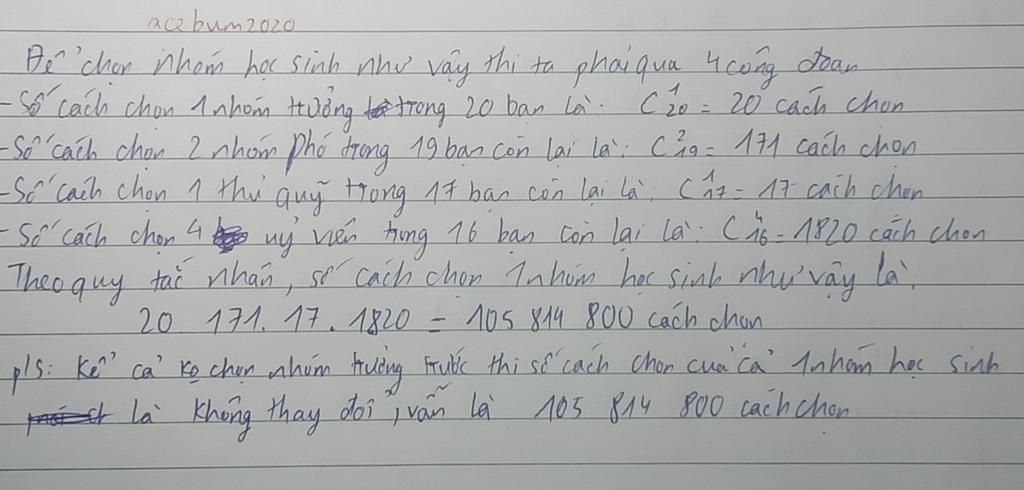 ac2bum2020
Để chọn nhóm học sinh như vậy thì ta phải qua 4 công đoạn
-Số cách chọn 1 nhóm trưởng trong 20 bạn là: C¹₂₀ = 20 cách chọn
-Số cách chọn 2 nhóm phó trong 19 bạn còn lại là: C²₁₉ = 171 cách chọn
-Số cách chọn 1 thủ quỹ trong 17 bạn còn lại là: C¹₁₇ = 17 cách chọn
-Số cách chọn 4 uỷ viên trong 16 bạn còn lại là: C⁴₁₆ = 1820 cách chọn
Theo quy tắc nhân, số cách chọn 1 nhóm học sinh như vậy là:
20. 171. 17. 1820 = 105 814 800 cách chọn
p/s: Kể cả ko chọn nhóm trưởng trước thì số cách chọn của cả 1 nhóm học sinh
là không thay đổi, vẫn là 105 814 800 cách chọn